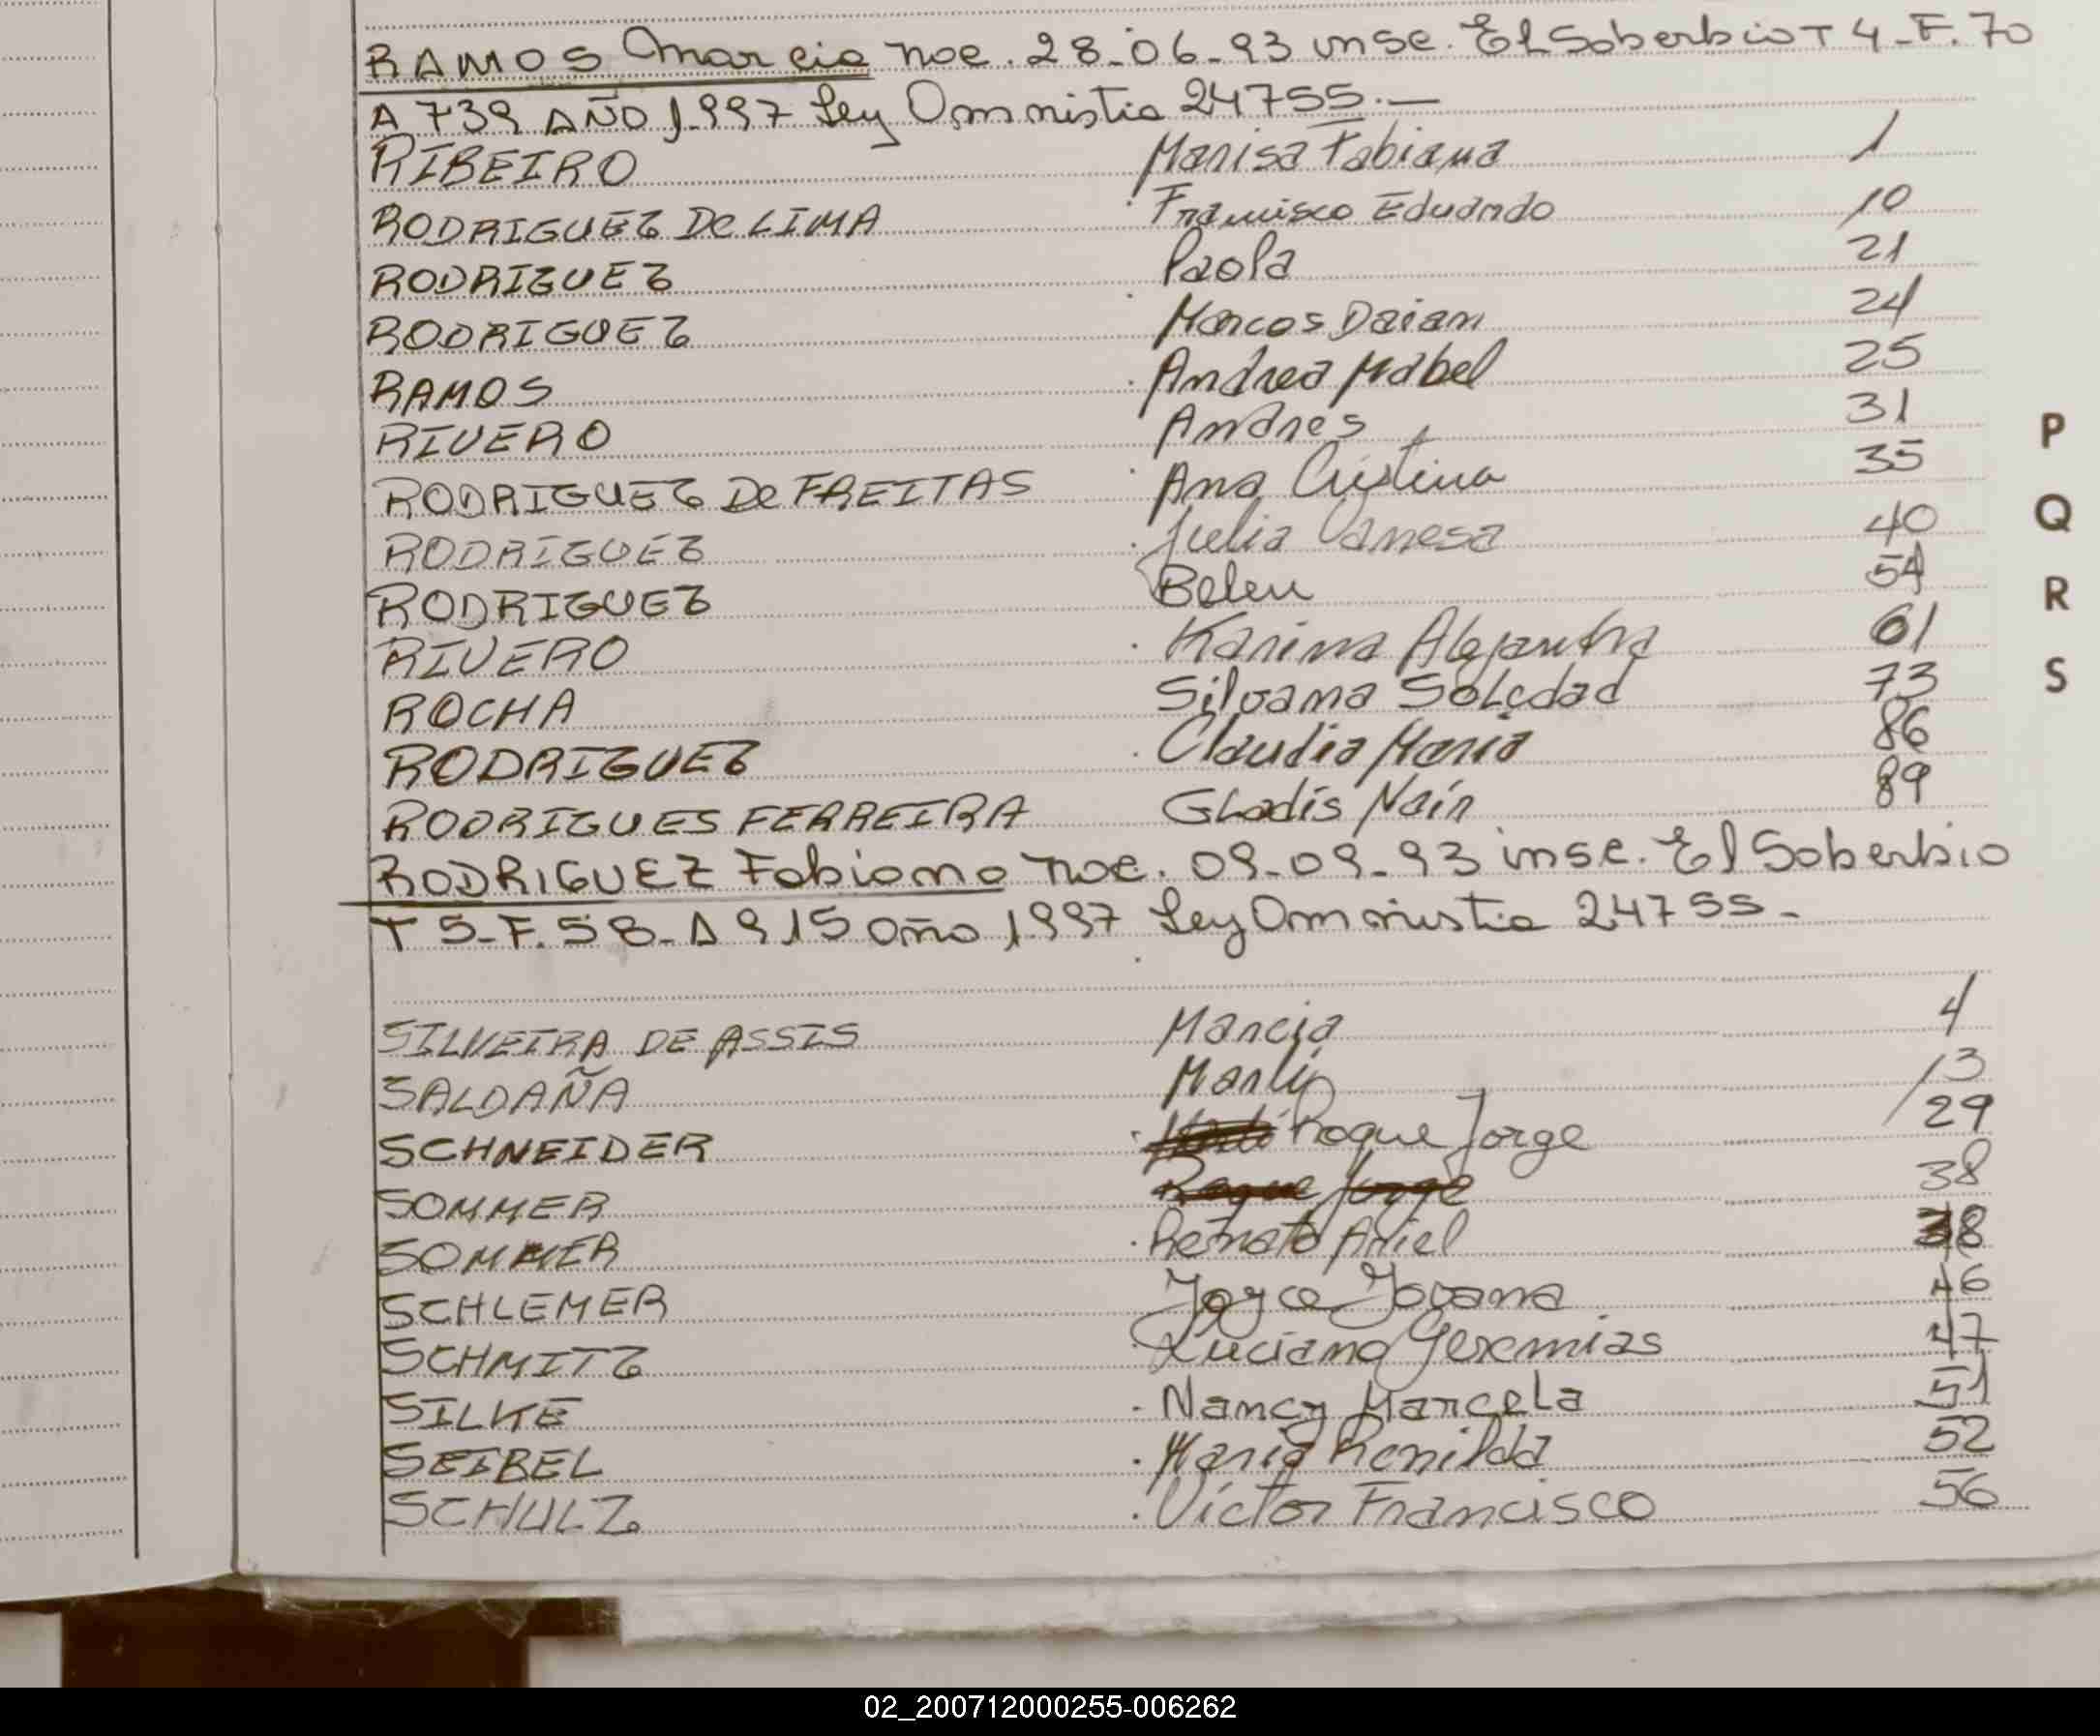 RAMOS Marcia noc. 28-06-93 insc. El Soberbio T 4-F. 70
A 739 AÑO 1.997 Ley Omnistia 24755.—
RIBEIRO Marisa Fabiana 1
RODRIGUEZ De LIMA Francisco Eduardo 10
RODRIGUEZ Paola 21
RODRIGUEZ Marcos Daian 24
RAMOS Andrea Mabel 25
RIVERO Andres 31
RODRIGUEZ De FREITAS Ana Cristina 35
RODRIGUEZ Julia Vanesa 40
RODRIGUEZ Belen 54
RIVERO Karina Alejandra 61
ROCHA Silvana Soledad 73
RODRIGUEZ Claudia Maria 86
RODRIGUES FERREIRA Gladis Nair 89
RODRIGUEZ Fabiana noc. 09-09-93 insc. El Soberbio
T 5-F. 58-A 915 año 1.997 Ley Omnistia 24755-
SILVEIRA DE ASSIS Marcia 4
SALDAÑA Marli 13
SCHNEIDER Roque Jorge 29
SOMMER Roque Jorge 38
SOMMER Renato Ariel 38
SCHLEMER Joyce Jovana 46
SCHMITZ Luciano Geremias 47
SILKE Nancy Marcela 51
SEIBEL Maria Renilda 52
SCHULZ Victor Francisco 56
P
Q
R
S
02_200712000255-006262